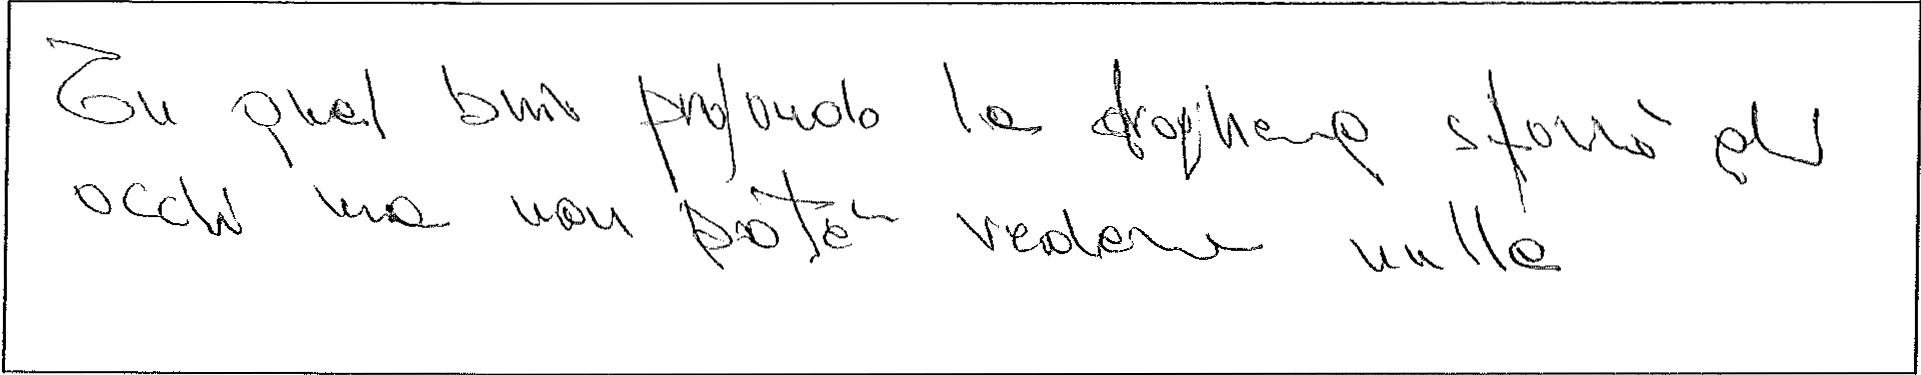 In quel buio profondo la droghiera sforzò gli
occhi ma non poté vedere nulla